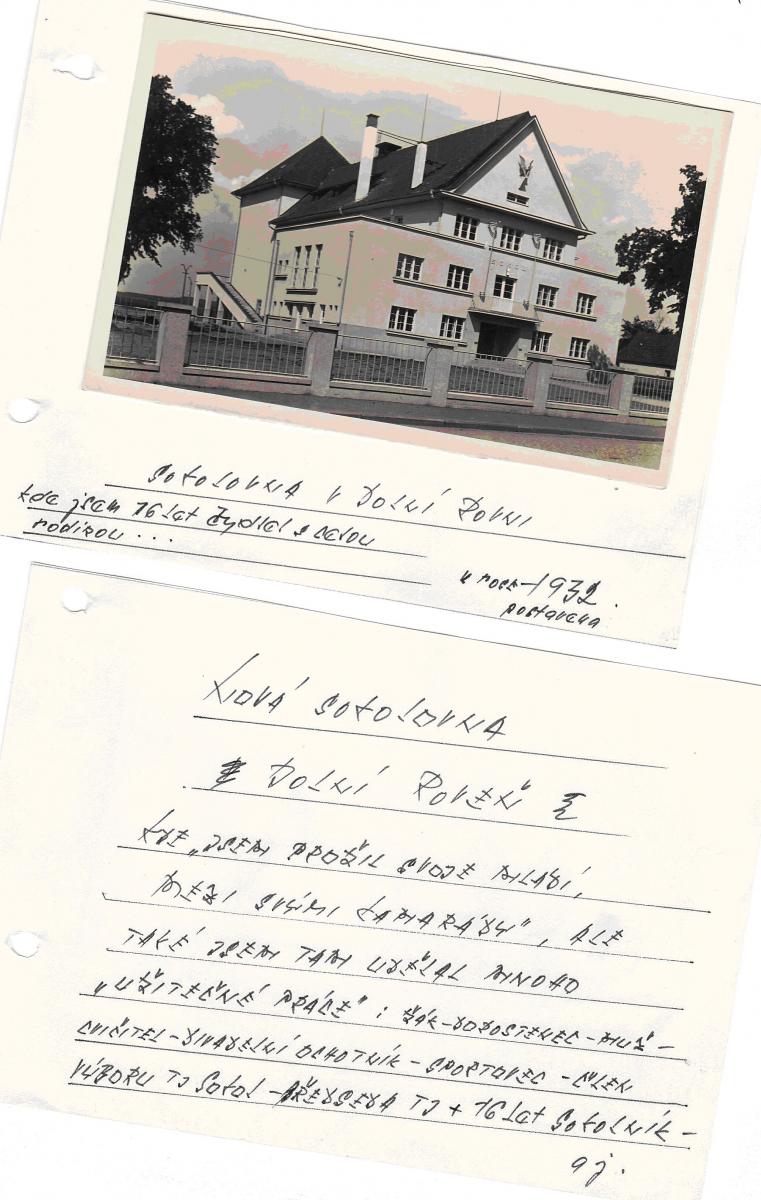 SOKOLOVNA V DOLNÍ ROVNI
kde jsem 16 let bydlel s celou
rodinou ...
v roce 1932.
postavena
NOVÁ SOKOLOVNA
DOLNÍ ROVEŇ
KDE „JSEM PROŽIL SVOJE MLÁDÍ,
MEZI SVÝMI KAMARÁDY", ALE
TAKÉ JSEM TAM UDĚLAL MNOHO
„UŽITEČNÉ PRÁCE": ŽÁK-DOROSTENEC-MUŽ-
CVIČITEL-DIVADELNÍ OCHOTNÍK-SPORTOVEC-ČLEN
VÝBORU TJ SOKOL-PŘEDSEDA TJ + 16 LET SOKOLNÍK-
aj.